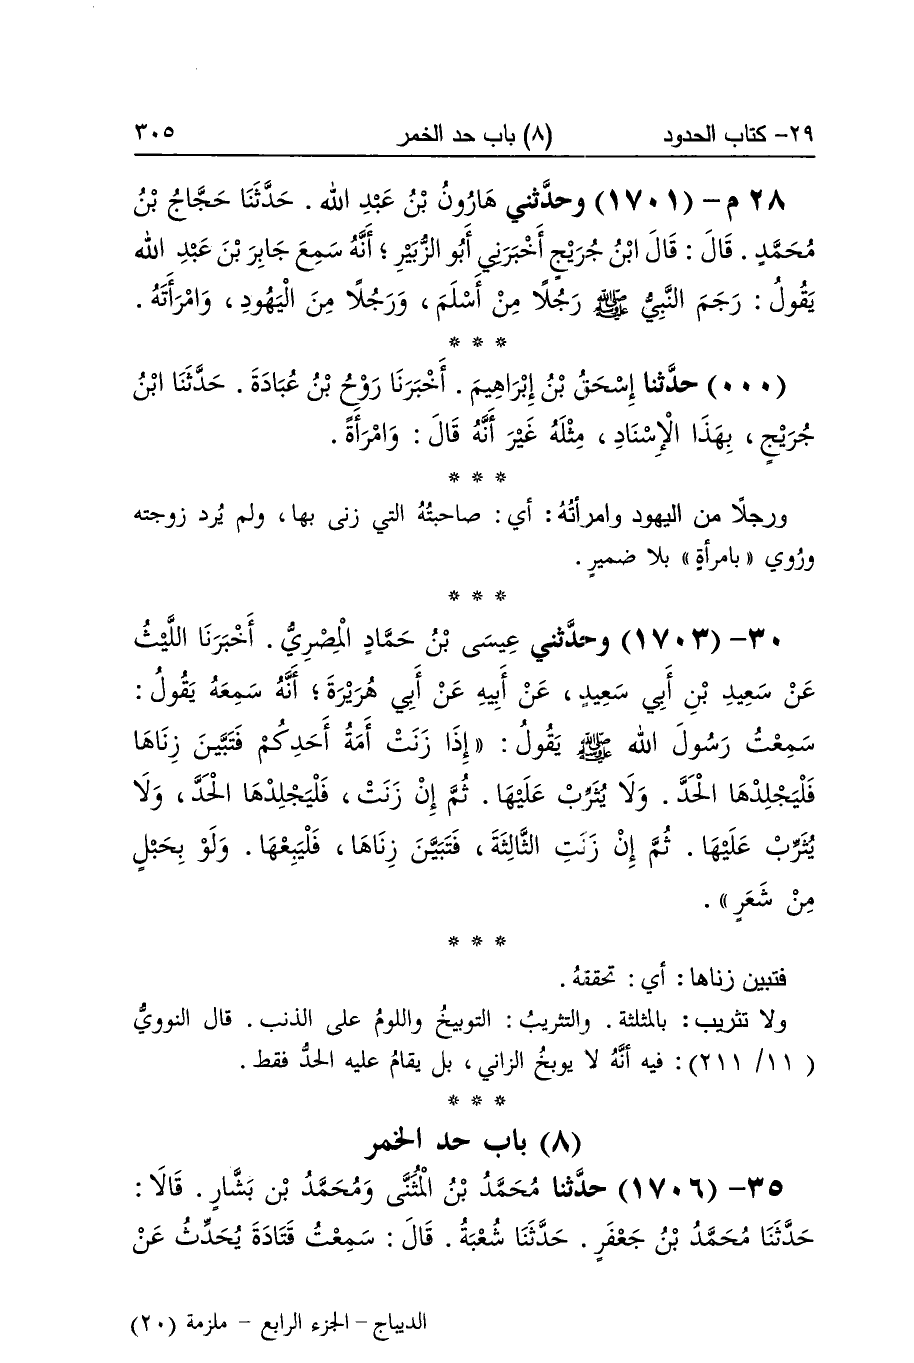 ٢٩- كتاب الحدود (٨) باب حد الخمر ٣٠٥
٢٨ م- (١٧٠١) وحدَّثني هَارُونُ بْنُ عَبْدِ الله . حَدَّثَنَا حَجَّاجُ بْنُ
مُحَمَّدٍ . قَالَ : قَالَ ابْنُ جُرَيْجٍ أَخْبَرَنِي أَبُو الزُّبَيْرِ ؛ أَنَّهُ سَمِعَ جَابِرَ بْنَ عَبْدِ الله
يَقُولُ : رَجَمَ النَّبِيُّ ﷺ رَجُلًا مِنْ أَسْلَمَ ، وَرَجُلًا مِنَ الْيَهُودِ ، وَامْرَأَتَهُ .
* * *
(٠٠٠) حدَّثنا إِسْحَقُ بْنُ إِبْرَاهِيمَ . أَخْبَرَنَا رَوْحُ بْنُ عُبَادَةَ . حَدَّثَنَا ابْنُ
جُرَيْجٍ ، بِهَذَا الْإِسْنَادِ ، مِثْلَهُ غَيْرَ أَنَّهُ قَالَ : وَامْرَأَةً .
* * *
ورجلًا من اليهود وامرأتُهُ : أي : صاحبتُهُ التي زنى بها ، ولم يُرد زوجته
ورُوي «بامرأةٍ» بلا ضميرٍ .
* * *
٣٠- (١٧٠٣) وحدَّثني عِيسَى بْنُ حَمَّادٍ الْمِصْرِيُّ . أَخْبَرَنَا اللَّيْثُ
عَنْ سَعِيدِ بْنِ أَبِي سَعِيدٍ ، عَنْ أَبِيهِ عَنْ أَبِي هُرَيْرَةَ ؛ أَنَّهُ سَمِعَهُ يَقُولُ :
سَمِعْتُ رَسُولَ الله ﷺ يَقُولُ : «إِذَا زَنَتْ أَمَةُ أَحَدِكُمْ فَتَبَيَّنَ زِنَاهَا
فَلْيَجْلِدْهَا الْحَدَّ . وَلَا يُثَرِّبْ عَلَيْهَا . ثُمَّ إِنْ زَنَتْ ، فَلْيَجْلِدْهَا الْحَدَّ ، وَلَا
يُثَرِّبْ عَلَيْهَا . ثُمَّ إِنْ زَنَتِ الثَّالِثَةَ ، فَتَبَيَّنَ زِنَاهَا ، فَلْيَبِعْهَا . وَلَوْ بِحَبْلٍ
مِنْ شَعَرٍ» .
* * *
فتبين زناها : أي : تحققهُ .
ولا تثريب : بالمثلثة . والتثريبُ : التوبيخُ واللومُ على الذنب . قال النوويُّ
(١١/ ٢١١) : فيه أنَّهُ لا يوبخُ الزاني ، بل يقامُ عليه الحدُّ فقط .
* * *
(٨) باب حد الخمر
٣٥- (١٧٠٦) حدَّثنا مُحَمَّدُ بْنُ الْمُثَنَّى وَمُحَمَّدُ بْنِ بَشَّارٍ . قَالَا :
حَدَّثَنَا مُحَمَّدُ بْنُ جَعْفَرٍ . حَدَّثَنَا شُعْبَةُ . قَالَ : سَمِعْتُ قَتَادَةَ يُحَدِّثُ عَنْ
الديباج - الجزء الرابع - ملزمة (٢٠)